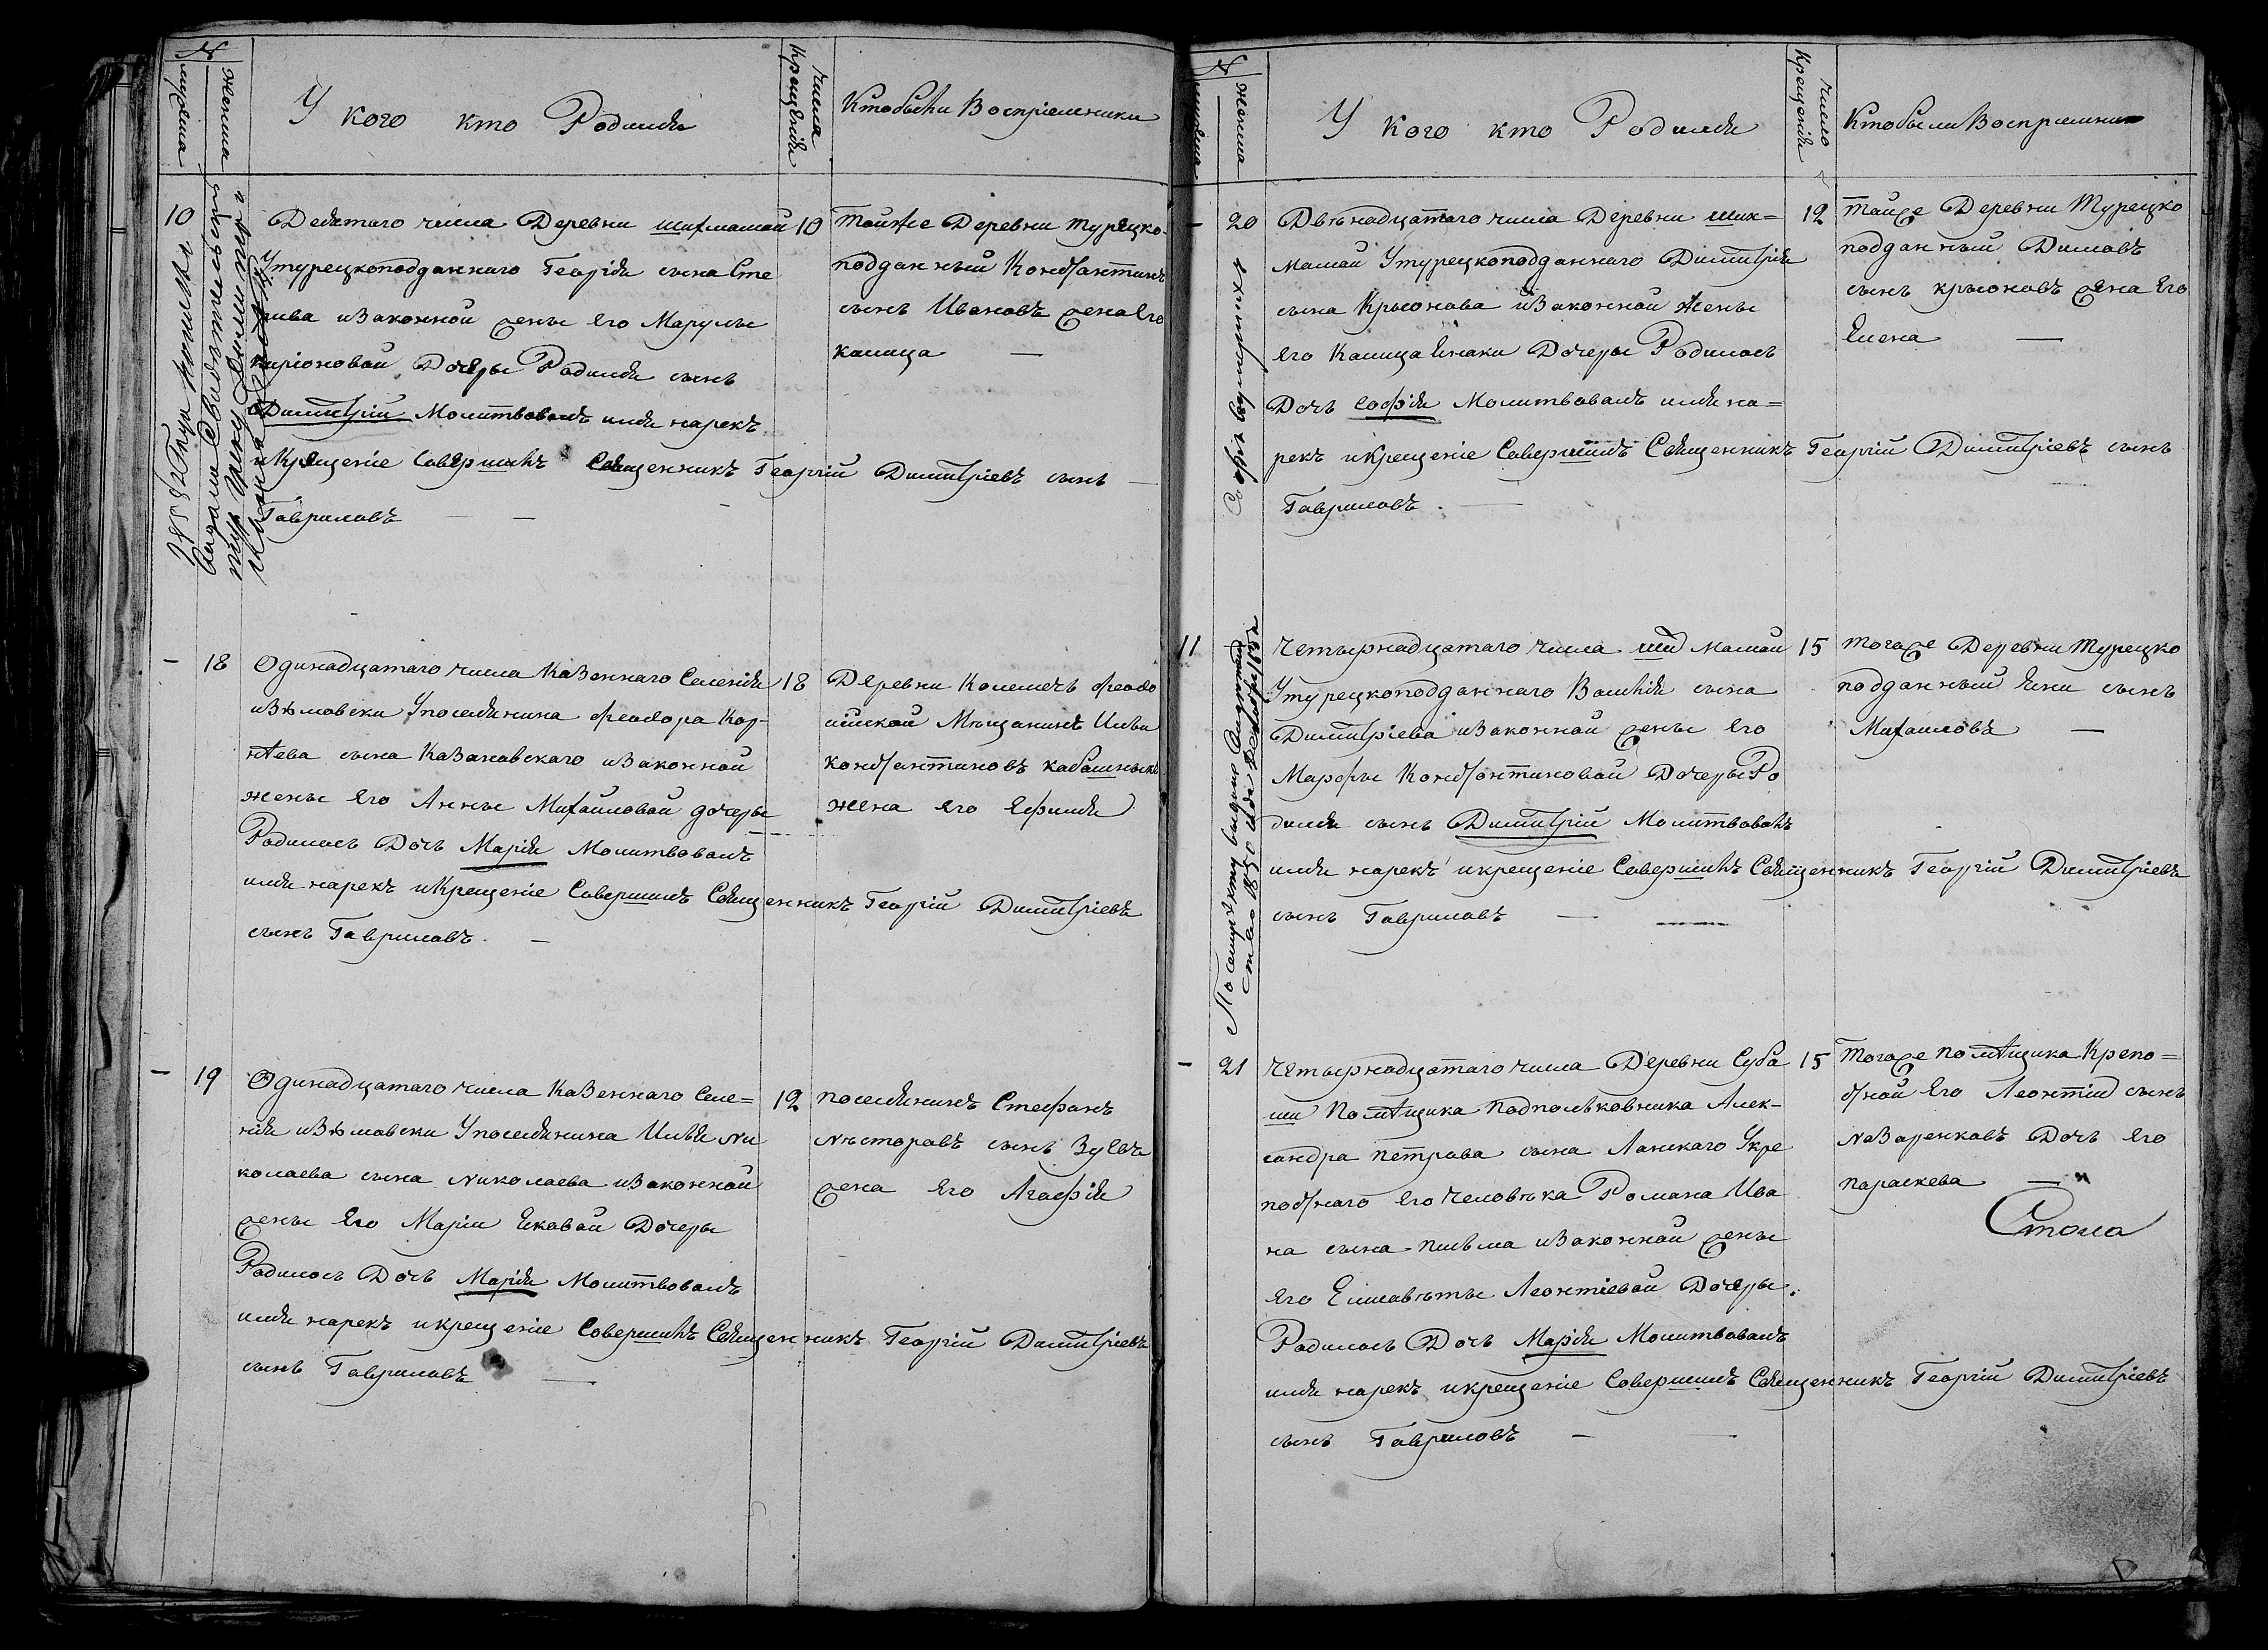 №
мужеска
женска
У кого кто Родился
Числа
Крещенія
Кто были Воспріемники
10
Десятаго числа Деревни шихмамай
У турецкоподданнаго Георгія сына Сте
ива и законной жены его Марулы
киріоновой Дочеры Родился сынъ
Димитрій Молитвовалъ имя нарекъ
и Крещеніе Совершилъ Священникъ Георгій Димитріевъ сынъ
Гавриловъ
10
Тойже Деревни турецко-
подданный Константинъ
сынъ Ивановъ жена Его
калица
- 18
Одинадцатаго числа Казеннаго Селенія
изѣмовски У поселянина феодора Кор-
нѣева сына Казановскаго и законной
жены Его Анны Михайловой дочеры
Родилась Дочь Марія Молитвовалъ
имя нарекъ и Крещеніе Совершилъ Священникъ Георгій Димитріевъ
сынъ Гавриловъ
18
Деревни Колемечъ феодо
сійской Мѣщанинъ Илья
константиновъ
жена его Ефимія
- 19
Одинадцатаго числа Казеннаго Селе=
нія изѣмовски У поселянина Ильи Ни
колаева сына Николаева и законной
жены Его Маріи Дочеры
Родилась Дочь Марія Молитвовалъ
имя нарекъ и крещеніе Совершилъ Священникъ Георгій Димитріевъ
сынъ Гавриловъ
12
поселянинъ Стефанъ
Нѣсторовъ сынъ Зуевъ
жена Его Агафія
№
мужеска
женска
У кого кто Родился
Число
Крещенія
Кто были Воспріемники
- 20
Двѣнадцатаго числа Деревни шик=
мамай У турецкоподданнаго Димитрія
сына Крыонова и законной жены
Его Калица Янаки Дочеры Родилась
Дочь Софія Молитвовалъ имя на=
рекъ и Крещеніе Совершилъ Священникъ Георгій Димитріевъ сынъ
Гавриловъ
12
тойже Деревни Турецко
подданный Димовъ
сынъ крыоновъ жена Его
Елена
11
Четырнадцатаго числа мамай
У турецкоподданнаго Василія сына
Димитріева и законной жены Его
Марфы Константиновой Дочеры Ро
дился сынъ Димитрій Молитвовалъ
имя нарекъ и крещеніе Совершилъ Священникъ Георгій Димитріевъ
сынъ Гавриловъ
15
Тогоже Деревни Турецко
подданный Яни сынъ
Михаиловъ
- 21
Четырнадцатаго числа Деревни Суба
ши Помѣщика Подполъковника Алек-
сандра петрова сына Ланскаго Укре
постнаго Его человѣка Романа Ива
на сына и законной жены
Его Елисаветы Леонтіевой Дочеры.
Родилась Дочь Марія Молитвовалъ
имя нарекъ и крещеніе Совершилъ Священникъ Георгій Димитріевъ
сынъ Гавриловъ
15
Тогоже помѣщика Крепо=
стной Его Леонтій сынъ
Назаренковъ Дочь Его
параскева